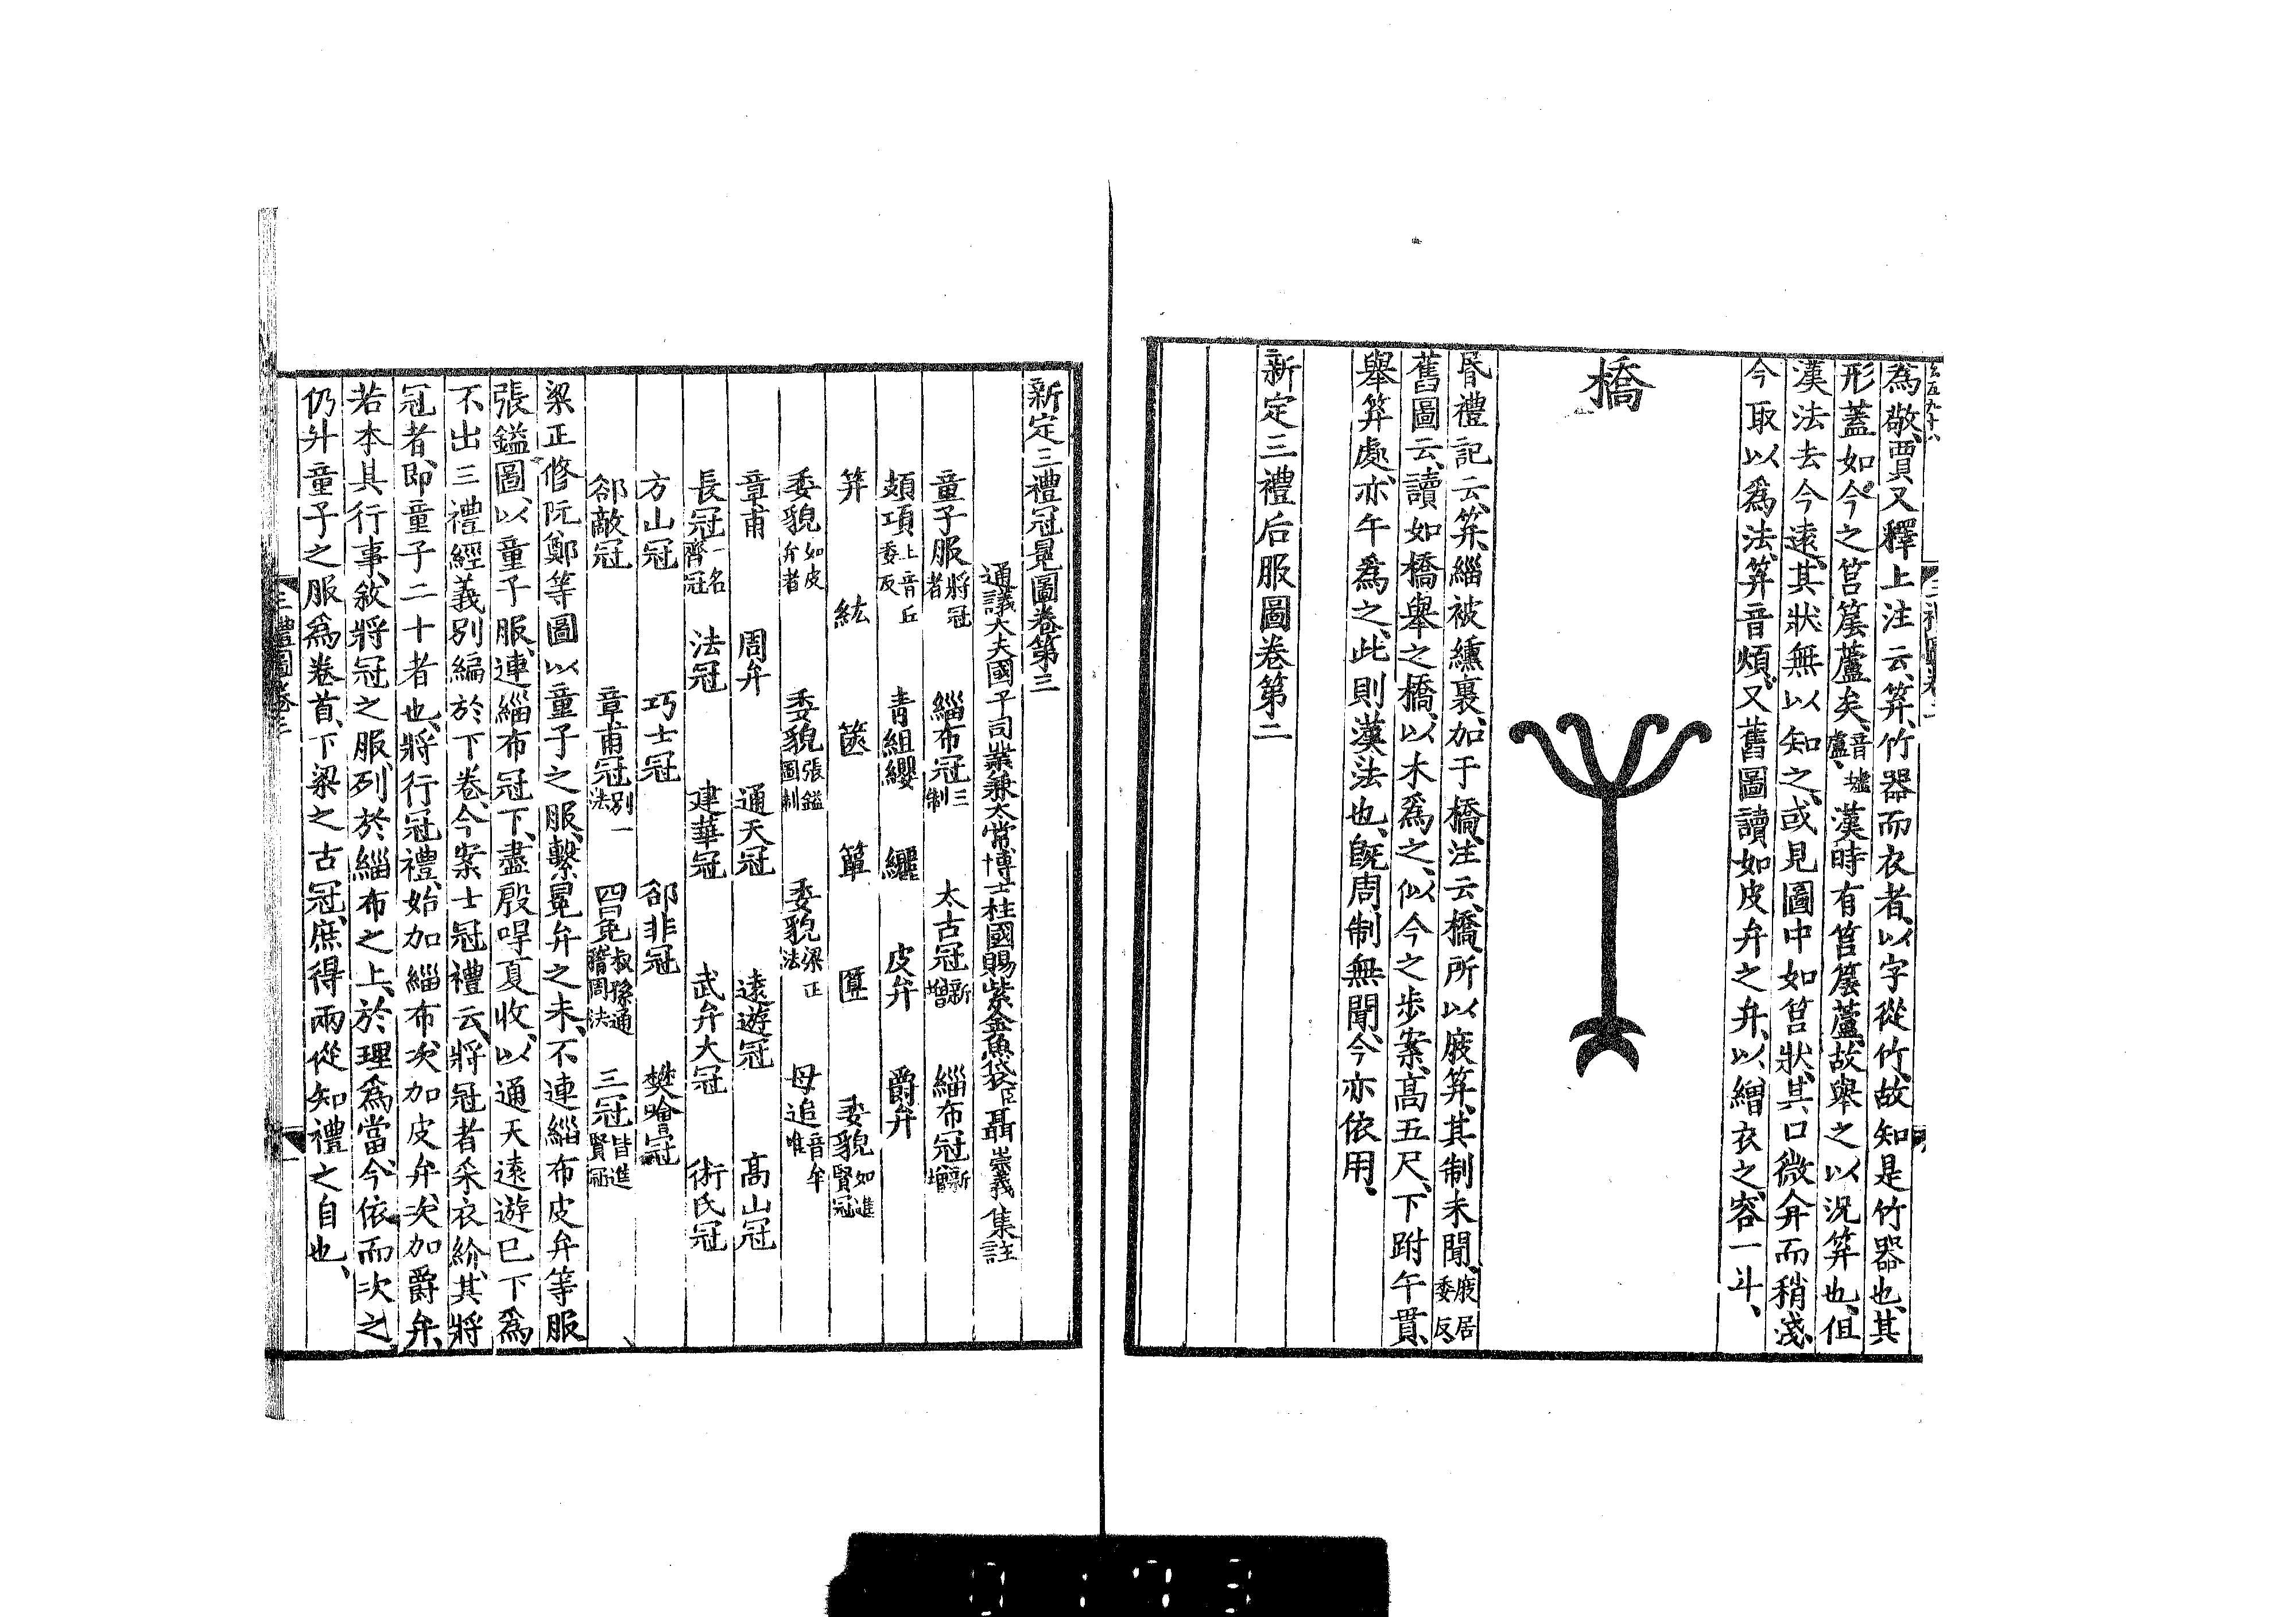 為敬賈又釋上注云笲竹器而衣者以字從竹故知是竹器也其
形蓋如今之筥䈰蘆矣音墟盧漢時有筥䈰蘆故舉之以況笲也但
漢法去今遠其狀無以知之或見圖中如筥狀其口微弇而稍淺
今取以為法笲音煩又舊圖讀如皮弁之弁以繒衣之容一斗
橋
昬禮記云笲緇被纁裏加于橋注云橋所以庪笲其制未聞庪居委反
舊圖云讀如橋舉之橋以木為之似今之步案高五尺下跗午貫
舉笲處亦午為之此則漢法也旣周制無聞今亦依用
新定三禮后服圖卷第二
新定三禮冠冕圖卷第三
通議大夫國子司業兼太常博士柱國賜紫金魚袋臣聶崇義集註
童子服將冠者 緇布冠三制 太古冠新增 緇布冠新增
頍項上音丘委反 青組纓 纚 皮弁 爵弁
笄 紘 篋 簞 匴 委貌如進賢冠
委貌如皮弁者 委貌張鎰圖制 委貌梁正法 母追音牟唯
章甫 周弁 通天冠 遠遊冠 高山冠
長冠一名齊冠 法冠 建華冠 武弁大冠 術氏冠
方山冠 巧士冠 郤非冠 樊噲冠
郤敵冠 章甫冠別一法 四冕叔孫通牅周法 三冠皆進賢冠
梁正修阮鄭等圖以童子之服繫冕弁之末不連緇布皮弁等服
張鎰圖以童子服連緇布冠下盡殷哻夏收以通天遠遊已下為
不出三禮經義別編於下卷今案士冠禮云將冠者采衣紒其將
冠者即童子二十者也將行冠禮始加緇布次加皮弁次加爵弁
若本其行事敘將冠之服列於緇布之上於理為當今依而次之
仍升童子之服為卷首下梁之古冠庶得兩從知禮之自也
三禮圖卷三
一